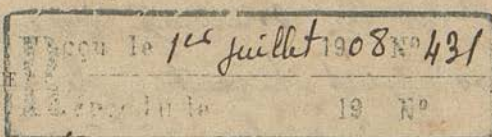 Reçu le 1er juillet 1908 Nº 431
Répondu le 19 Nº